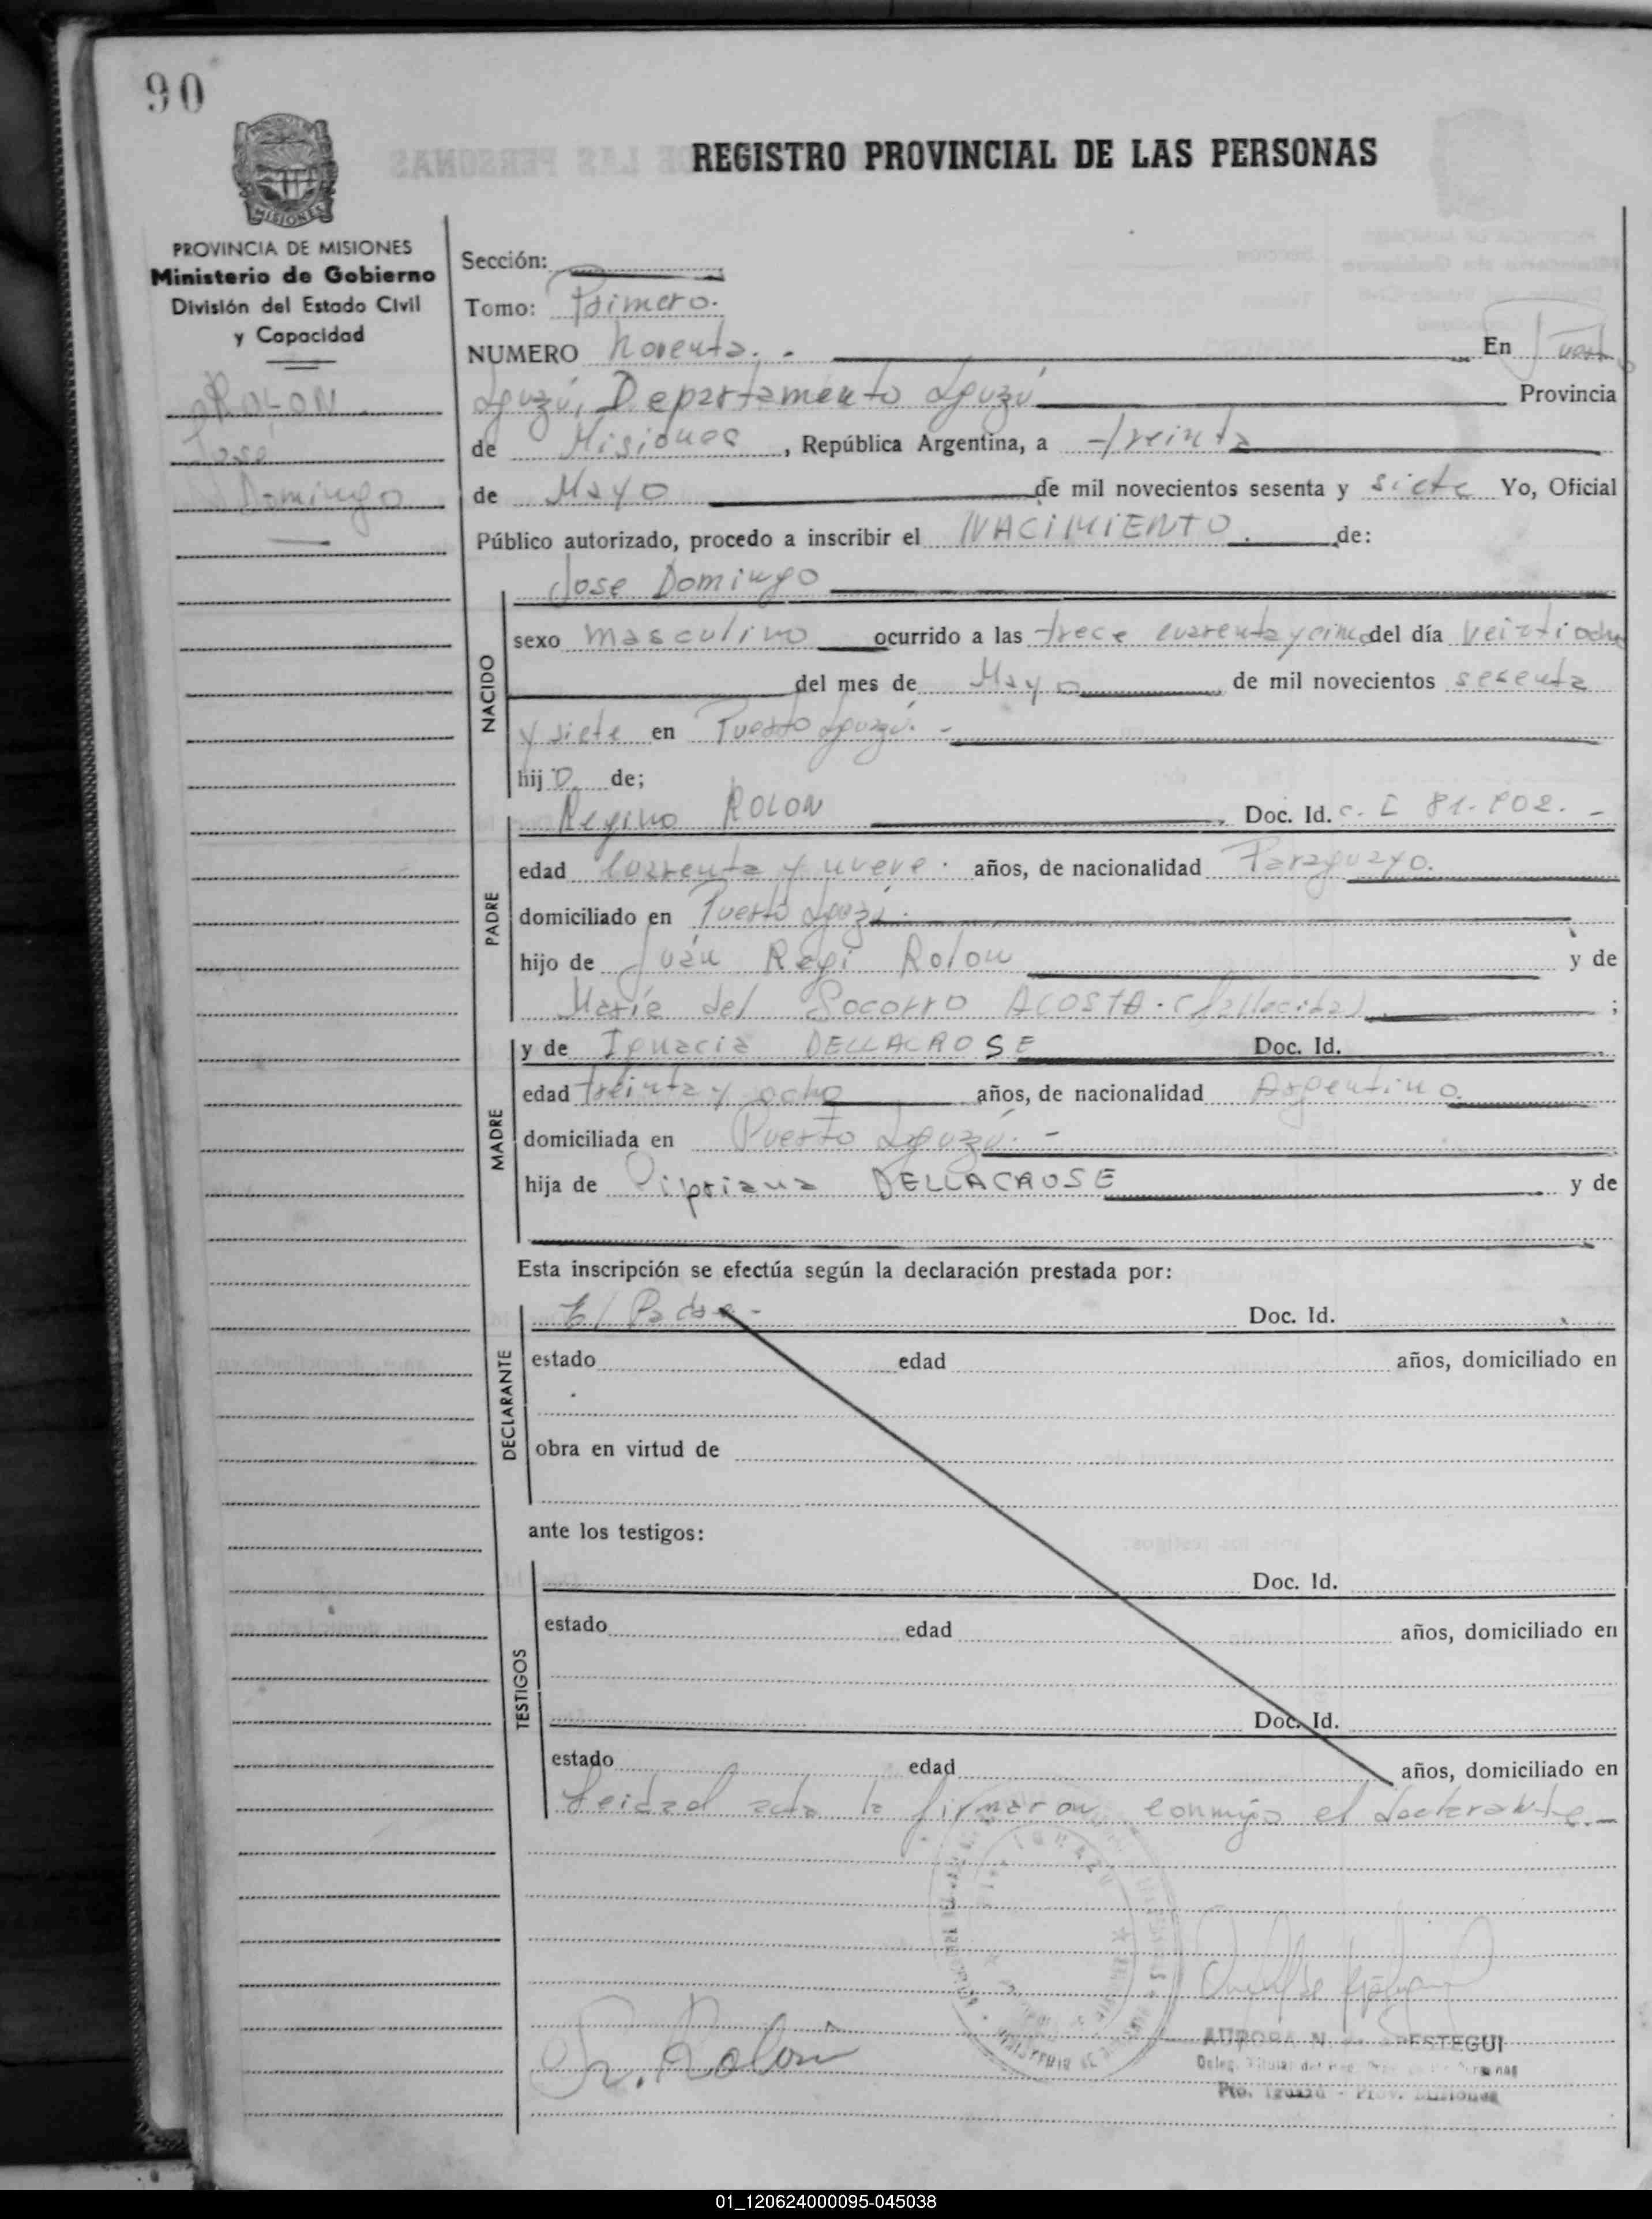 90
REGISTRO PROVINCIAL DE LAS PERSONAS
MISIONES
PROVINCIA DE MISIONES
Ministerio de Gobierno
División del Estado Civil
y Capacidad
ROLON
Jose
Domingo
Sección:
Tomo: Primero.
NUMERO Noventa. - En Puerto
Iguazú, Departamento Iguazú Provincia
de Misiones, República Argentina, a treinta
de Mayo de mil novecientos sesenta y siete Yo, Oficial
Público autorizado, procedo a inscribir el NACIMIENTO. de:
Jose Domingo
NACIDO
sexo masculino ocurrido a las trece cuarenta y cinco del día veintiocho
del mes de Mayo de mil novecientos sesenta
y siete en Puerto Iguazú. -
hijo de;
PADRE
Regino ROLON Doc. Id. C. I 81.802. -
edad Cuarenta y nueve. años, de nacionalidad Paraguayo.
domiciliado en Puerto Iguazú.
hijo de Juan Regi Rolon y de
María del Socorro ACOSTA. (fallecida) ;
MADRE
y de Ignacia DELLACROSE Doc. Id.
edad treinta y ocho años, de nacionalidad Argentino.
domiciliada en Puerto Iguazú. -
hija de Cipriana DELLACROSE y de
Esta inscripción se efectúa según la declaración prestada por:
DECLARANTE
El Padre - Doc. Id.
estado edad años, domiciliado en
obra en virtud de
ante los testigos:
TESTIGOS
Doc. Id.
estado edad años, domiciliado en
Doc. Id.
estado edad años, domiciliado en
Leidad acta la firmaron conmigo el declarante. -
R. Rolon
AURORA N. de APESTEGUI
Deleg. Titular del Reg. Prov. de las Personas
Pto. Iguazú - Prov. Misiones
01_120624000095-045038